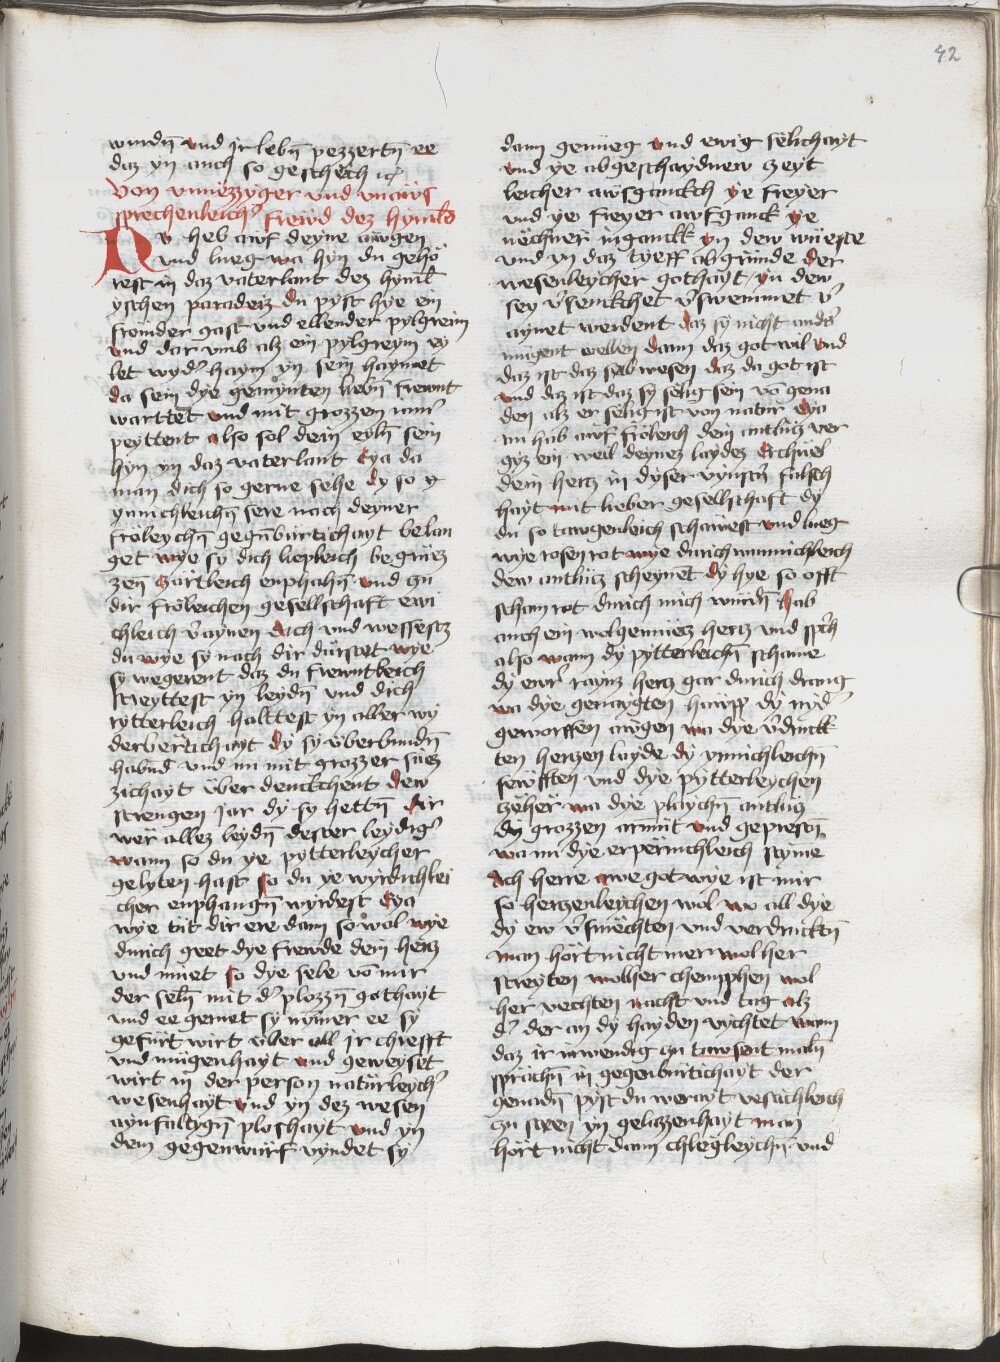 42
wurdn̄ vnd jr lebn̄ pezzertn̄ ee
daz yn auch so geschech ⁊c̄
Von vnmëzzyger vnd vnaws
sprechenleich̾ frewd dez hymels
Nv heb awf deyne awgen
vnd lueg wa hyn du gehö
rest in daz vaterlant dez hyml̄
yschen paradeiz du pyst hye ein
fromder gast vnd ellender pylgreim
vnd dar vmb alz ein pylgreym ey
let wyd̾ haym yn sein haymet
da sein dye gemÿnten liebn̄ frewnt
warttet vnd mit grozzen iam̾
peyttent also sol dein eyln̄ sein
hyn yn daz vaterlant Eya da
man dich so gerne sehe dy so y
ynnichleichn̄ sere nach deyner
froleychn̄ gegn̄bürtichayt belan
get wye sy dich liepleich begrüez
zen̄ zärtleich enphahn̄ vnd zu
dir fröleichen gesellschaft ewi
chleich v̾aynen Ach vnd wessestz
du wye sy nach dir dürstet wye
sy wegerent daz du frewntleich
streyttest yn leydn̄ vnd dich
rytterleich halttest yn aller wy
derbertichayt dy sy überbundn̄
habnd vnd nu mit grozzer süez
zichayt über denckchent dew
strengen jar dy sy hettn̄ dir
wer allez leydn̄ dester leydig̾
wann so du ye pytterleycher
gelyten hast so du ye wyrdichlei
cher enphangn̄ wyrdest Eya
wye tüt dir ere dann so wol wye
durich geet dye frewde dein hertz
vnd müet so dye sele vo mir
der seln̄ mit d̾ plozzn̄ gothayt
vnd ee gernet sy nym̄er ee sy
gefürt wirt über all jr chrefft
vnd mügenhayt vnd geweyset
wirt in der person natürleych̾
wesenhayt vnd yn dez wesen
aynfaltygn̄ ploshayt vnd yn
dem gegenwürf vyndet sy
dann genüeg vnd ewig sëlichayt
vnd ye abgeschaydnew zeyt
leicher awsganckch ye freyer
vnd ye freyer awfganck ye
nëchner ingankk yn dew wüeste
vnd yn daz tyeff abgründe der
wesenleycher gothayt yn dew
sey v̾senckchet v̾swemmet v̾
aynet werdent daz sy nicht and̾s
mugent wellen dann daz got wil vnd
daz ist daz selb wesen daz da got ist
vnd daz ist daz sy selig sein vo gena
den alz er selig ist von natur Eya
nu hab awf fröleich dein antlütz ver
giz ein weil deynez laydez Erchüel
dein hertz in dyser vynst̾n falsch
hayt mit lieber gesellschaft dy
du so tawgenleich schawest vnd lueg
wye rosen rot wye durich wunnichleich
dew antlütz scheynet dy hye so offt
scham rot durich mich würdn̄ hab
auch ein wolgemüetz hertz vnd sp̾ch
also wann dy pytterleichn̄ schame
dy ewr̾ raynz hertz gar durich drang
wa dye genaygten hawpp dy nyd̾
geworffen awgen wa dye v̾druck
ten hertzen layde dy ynnichleichn̄
sewfften vnd dye pytterleychen
zëher wa dye playchn̄ antlüz
dy grozzen armüt vnd geprestn̄
wa nu dye erpermchleich stym̄e
Ach herre awe got wye ist mir
so hertzenleychen wol wo all dye
dy ew v̾smëchten vnd verdruckt̄n
man hört nicht mer wol her
streyten wollher chempphen wol
her vechten nacht vnd tag alz
d̾ der an dy hayden vychtet wann
daz ir inwendig zu tawsent maln̄
sprächn̄ in gegenbürtichayt der
genadn̄ pyst du werayt vestichleich
zu steen yn gelazzenhayt man
hört nicht dann chlegleychn̄ vnd